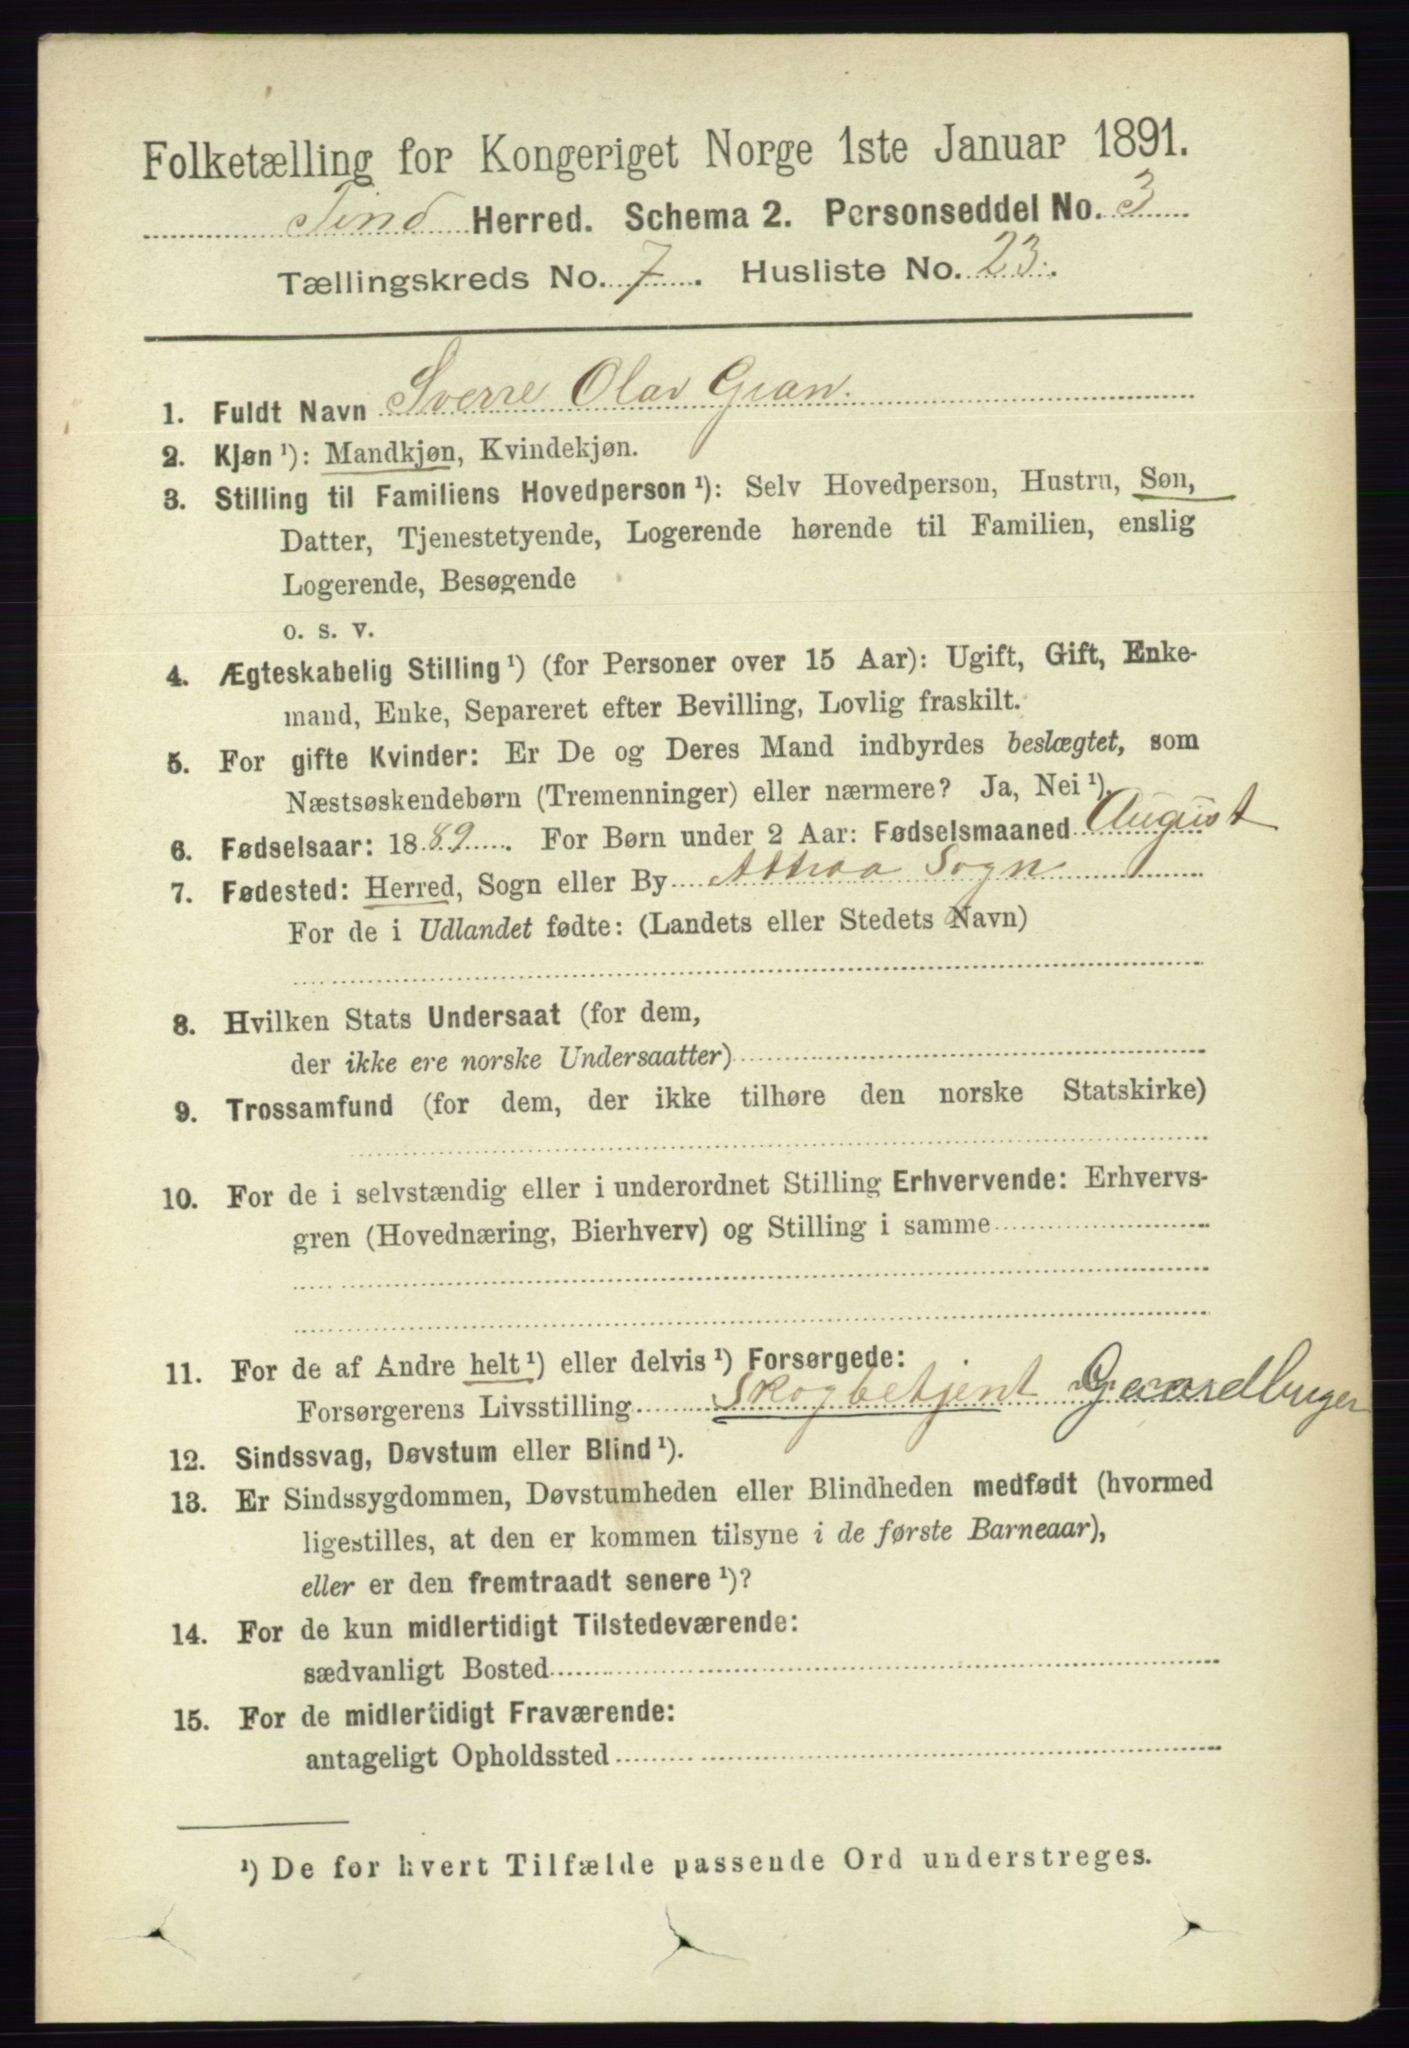 Folketælling for Kongeriget Norge 1ste Januar 1891.
Tind Herred. Schema 2. Personseddel No. 3
Tællingskreds No. 7. Husliste No. 23.
1. Fuldt Navn Sverre Olav Gran.
2. Kjøn ¹): Mandkjøn, Kvindekjøn.
3. Stilling til Familiens Hovedperson ¹): Selv Hovedperson, Hustru, Søn,
Datter, Tjenestetyende, Logerende hørende til Familien, enslig
Logerende, Besøgende
o. s. v.
4. Ægteskabelig Stilling ¹) (for Personer over 15 Aar): Ugift, Gift, Enke-
mand, Enke, Separeret efter Bevilling, Lovlig fraskilt.
5. For gifte Kvinder: Er De og Deres Mand indbyrdes beslægtet, som
Næstsøskendebørn (Tremenninger) eller nærmere? Ja, Nei ¹).
6. Fødselsaar: 1889. For Børn under 2 Aar: Fødselsmaaned August
7. Fødested: Herred, Sogn eller By Attraa Sogn
For de i Udlandet fødte: (Landets eller Stedets Navn)
8. Hvilken Stats Undersaat (for dem,
der ikke ere norske Undersaatter)
9. Trossamfund (for dem, der ikke tilhøre den norske Statskirke)
10. For de i selvstændig eller i underordnet Stilling Erhvervende: Erhvervs-
gren (Hovednæring, Bierhverv) og Stilling i samme
11. For de af Andre helt ¹) eller delvis ¹) Forsørgede:
Forsørgerens Livsstilling Skogbetjent Gaardbruger
12. Sindssvag, Døvstum eller Blind ¹).
13. Er Sindssygdommen, Døvstumheden eller Blindheden medfødt (hvormed
ligestilles, at den er kommen tilsyne i de første Barneaar),
eller er den fremtraadt senere ¹)?
14. For de kun midlertidigt Tilstedeværende:
sædvanligt Bosted
15. For de midlertidigt Fraværende:
antageligt Opholdssted
¹) De for hvert Tilfælde passende Ord understreges.